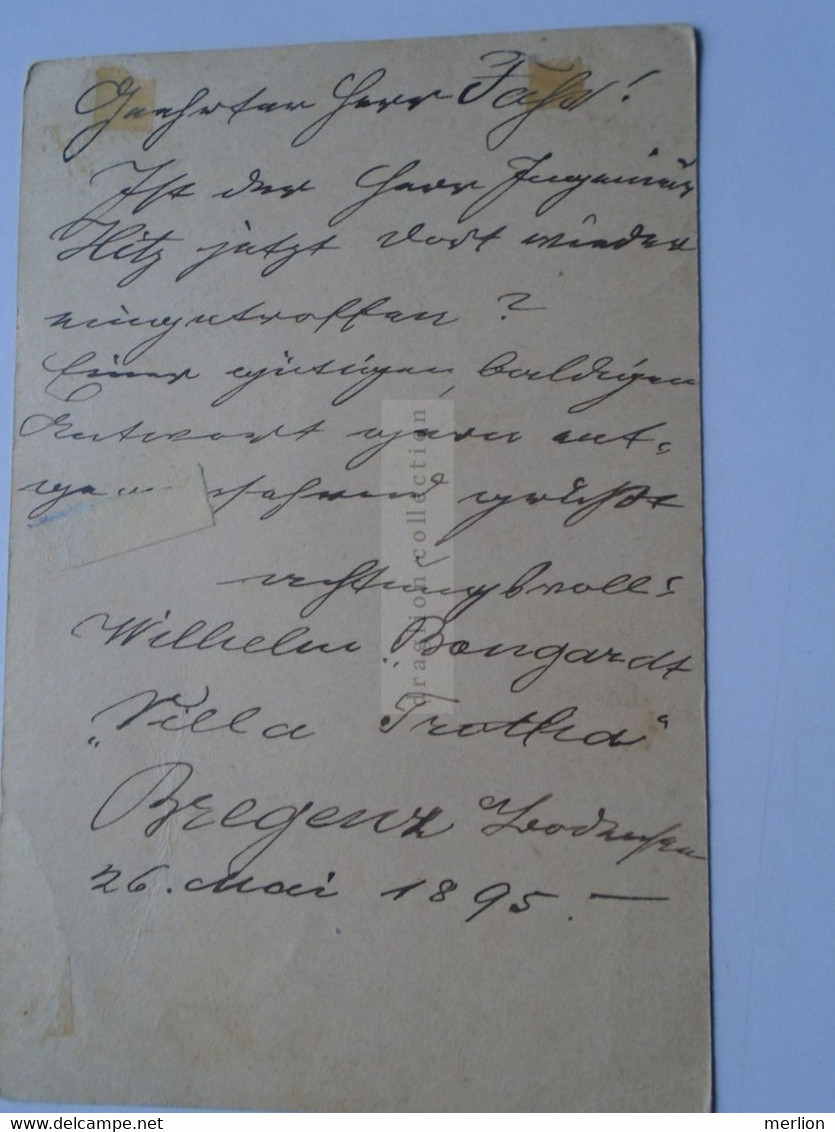 Geehrter Herr
Ist der Herr Ingenieur
Hitz jetzt dort wieder
eingetroffen?
Einer gütigen, baldigen
Antwort gern ent-
grüßt
achtungsvoll!
Wilhelm Bongardt
„Villa Trotha“
Bregenz Bodensee
26. Mai 1895.—
dragljon collection
www.delcampe.net
merlion